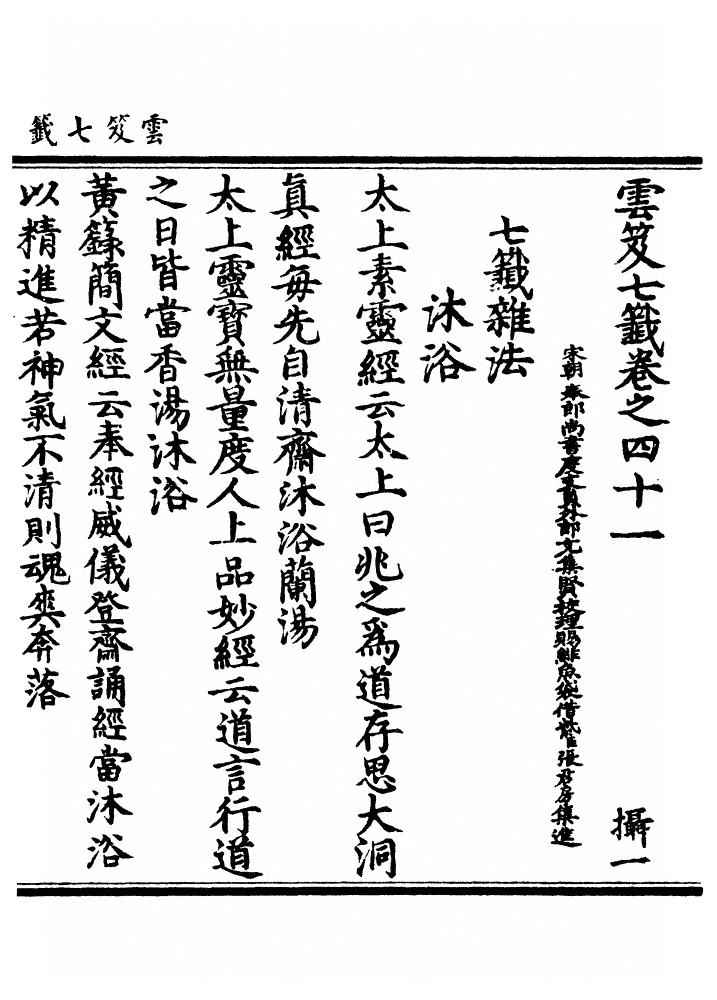 雲笈七籤
雲笈七籤卷之四十一 攝一
宋朝奉郎尚書度支員外郎充集賢校理賜緋魚袋借紫臣張君房集進
七籤雜法
沐浴
太上素靈經云太上曰兆之爲道存思大洞
眞經每先自清齋沐浴蘭湯
太上靈寶無量度人上品妙經云道言行道
之日皆當香湯沐浴
黃籙簡文經云奉經威儀登齋誦經當沐浴
以精進若神氣不清則魂爽奔落